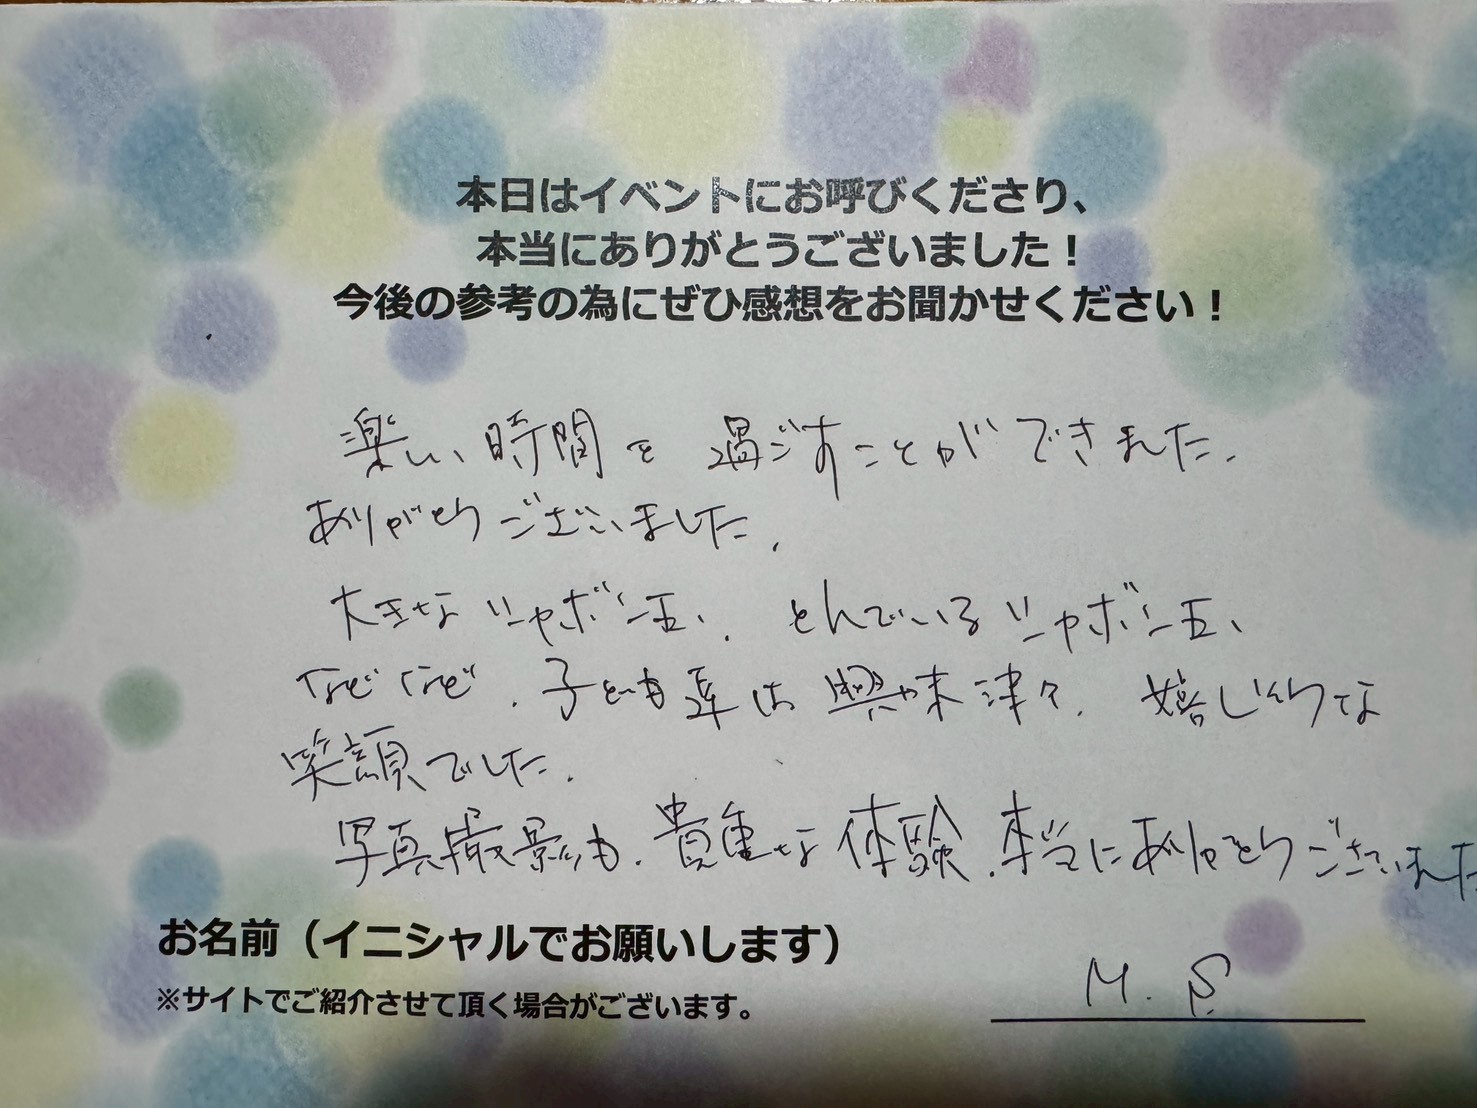 本日はイベントにお呼びくださり、
本当にありがとうございました！
今後の参考の為にぜひ感想をお聞かせください！
楽しい時間を過ごすことができました。
ありがとうございました。
大きなシャボン玉、とんでいるシャボン玉、
などなど、子ども達は興味津々、嬉しそうな
笑顔でした。
写真撮影も、貴重な体験、本当にありがとうございました
お名前（イニシャルでお願いします）
M. S.
※サイトでご紹介させて頂く場合がございます。